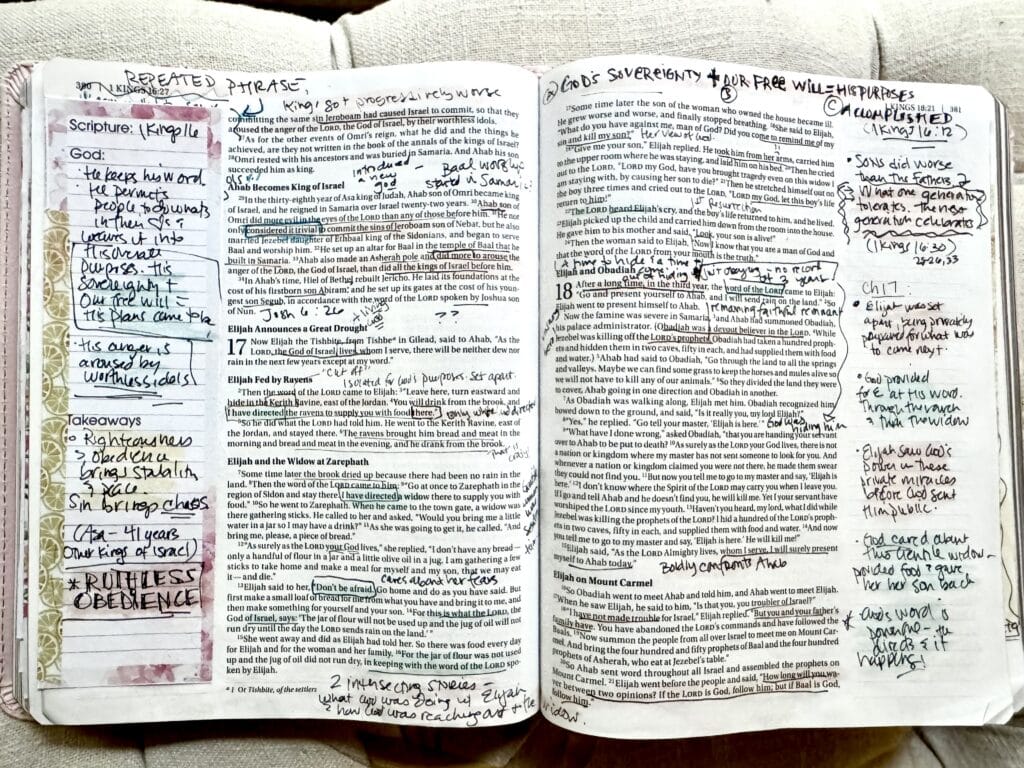 REPEATED PHRASE,
380 1 KINGS 16:27
Kings got progressively worse
Scripture: 1 Kings 16
God:
• He keeps his word.
• He permits
people to do what's
in their
weaves it into
His overall
purposes. His
sovereignty +
Our free will =
His plans came to be
• His anger is
aroused by
worthless idols
Takeaways
Righteousness
obedience
brings stability
peace.
Sin brings chaos
(Asa – 41 years
other kings of Israel)
*RUTHLESS
OBEDIENCE
committing the same sin Jeroboam had caused Israel to commit, so that they
aroused the anger of the LORD, the God of Israel, by their worthless idols.
27As for the other events of Omri's reign, what he did and the things he
achieved, are they not written in the book of the annals of the kings of Israel?
28Omri rested with his ancestors and was buried in Samaria. And Ahab his son
succeeded him as king.
introduced
a new
god
Baal worship
started in Samaria
Ahab Becomes King of Israel
29In the thirty-eighth year of Asa king of Judah, Ahab son of Omri became king
of Israel, and he reigned in Samaria over Israel twenty-two years. 30Ahab son of
Omri did more evil in the eyes of the LORD than any of those before him. 31He not
only considered it trivial to commit the sins of Jeroboam son of Nebat, but he also
married Jezebel daughter of Ethbaal king of the Sidonians, and began to serve
Baal and worship him. 32He set up an altar for Baal in the temple of Baal that he
built in Samaria. 33Ahab also made an Asherah pole and did more to arouse the
anger of the LORD, the God of Israel, than did all the kings of Israel before him.
34In Ahab's time, Hiel of Bethel rebuilt Jericho. He laid its foundations at the
cost of his firstborn son Abiram, and he set up its gates at the cost of his young-
est son Segub, in accordance with the word of the LORD spoken by Joshua son
of Nun.
Josh 6:26
??
Elijah Announces a Great Drought
17 Now Elijah the Tishbite, from Tishbe* in Gilead, said to Ahab, "As the
LORD, the God of Israel, lives, whom I serve, there will be neither dew nor
rain in the next few years except at my word."
"cut off"
Elijah Fed by Ravens
Isolated for God's purposes. Set apart.
2Then the word of the LORD came to Elijah: 3"Leave here, turn eastward and
hide in the Kerith Ravine, east of the Jordan. 4You will drink from the brook, and
I have directed the ravens to supply you with food there."
only where is directed
5So he did what the LORD had told him. He went to the Kerith Ravine, east of
the Jordan, and stayed there. 6The ravens brought him bread and meat in the
morning and bread and meat in the evening, and he drank from the brook.
Elijah and the Widow at Zarephath
7Some time later the brook dried up because there had been no rain in the
land. 8Then the word of the LORD came to him: 9"Go at once to Zarephath in the
region of Sidon and stay there. I have directed a widow there to supply you with
food." 10So he went to Zarephath. When he came to the town gate, a widow was
there gathering sticks. He called to her and asked, "Would you bring me a little
water in a jar so I may have a drink?" 11As she was going to get it, he called, "And
bring me, please, a piece of bread."
12"As surely as the LORD your God lives," she replied, "I don't have any bread—
only a handful of flour in a jar and a little olive oil in a jug. I am gathering a few
sticks to take home and make a meal for myself and my son, that we may eat
it—and die."
cares about her fears
13Elijah said to her, "Don't be afraid. Go home and do as you have said. But
first make a small loaf of bread for me from what you have and bring it to me, and
then make something for yourself and your son. 14For this is what the LORD, the
God of Israel, says: 'The jar of flour will not be used up and the jug of oil will not
run dry until the day the LORD sends rain on the land.'"
15She went away and did as Elijah had told her. So there was food every day
for Elijah and for the woman and her family. 16For the jar of flour was not used
up and the jug of oil did not run dry, in keeping with the word of the LORD spo-
ken by Elijah.
* 1 Or Tishbite, of the settlers
2 intersecting stories –
what God was doing w/ Elijah
& how God was reaching out to the
widow.
(A) GOD'S SOVEREIGNTY + OUR FREE WILL = HIS PURPOSES
(B)
(C) ACCOMPLISHED
1 KINGS 18:21 381
(1 Kings 16:12)
17Some time later the son of the woman who owned the house became ill.
He grew worse and worse, and finally stopped breathing. 18She said to Elijah,
"What do you have against me, man of God? Did you come to remind me of my
sin and kill my son?"
Her view of God
19"Give me your son," Elijah replied. He took him from her arms, carried him
to the upper room where he was staying, and laid him on his bed. 20Then he cried
out to the LORD, "LORD my God, have you brought tragedy even on this widow I
am staying with, by causing her son to die?" 21Then he stretched himself out on
the boy three times and cried out to the LORD, "LORD my God, let this boy's life
return to him!"
1st Resurrection
22The LORD heard Elijah's cry, and the boy's life returned to him, and he lived.
23Elijah picked up the child and carried him down from the room into the house.
He gave him to his mother and said, "Look, your son is alive!"
24Then the woman said to Elijah, "Now I know that you are a man of God and
that the word of the LORD from your mouth is the truth."
A time to hide & a time to
come out of hiding
Just obeying – no record
of 3 years
Elijah and Obadiah
18 After a long time, in the third year, the word of the LORD came to Elijah:
"Go and present yourself to Ahab, and I will send rain on the land." 2So
Elijah went to present himself to Ahab.
remaining faithful remnant
Now the famine was severe in Samaria, 3and Ahab had summoned Obadiah,
his palace administrator. (Obadiah was a devout believer in the LORD. 4While
Jezebel was killing off the LORD's prophets, Obadiah had taken a hundred proph-
ets and hidden them in two caves, fifty in each, and had supplied them with food
and water.) 5Ahab had said to Obadiah, "Go through the land to all the springs
and valleys. Maybe we can find some grass to keep the horses and mules alive so
we will not have to kill any of our animals." 6So they divided the land they were
to cover, Ahab going in one direction and Obadiah in another.
7As Obadiah was walking along, Elijah met him. Obadiah recognized him,
bowed down to the ground, and said, "Is it really you, my lord Elijah?"
8"Yes," he replied. "Go tell your master, 'Elijah is here.'"
God was
hiding him
9"What have I done wrong," asked Obadiah, "that you are handing your servant
over to Ahab to be put to death? 10As surely as the LORD your God lives, there is not
a nation or kingdom where my master has not sent someone to look for you. And
whenever a nation or kingdom claimed you were not there, he made them swear
they could not find you. 11But now you tell me to go to my master and say, 'Elijah is
here.' 12I don't know where the Spirit of the LORD may carry you when I leave you.
If I go and tell Ahab and he doesn't find you, he will kill me. Yet I your servant have
worshiped the LORD since my youth. 13Haven't you heard, my lord, what I did while
Jezebel was killing the prophets of the LORD? I hid a hundred of the LORD's proph-
ets in two caves, fifty in each, and supplied them with food and water. 14And now
you tell me to go to my master and say, 'Elijah is here.' He will kill me!"
15Elijah said, "As the LORD Almighty lives, whom I serve, I will surely present
myself to Ahab today."
Boldly confronts Ahab
Elijah on Mount Carmel
16So Obadiah went to meet Ahab and told him, and Ahab went to meet Elijah.
17When he saw Elijah, he said to him, "Is that you, you troubler of Israel?"
18"I have not made trouble for Israel," Elijah replied. "But you and your father's
family have. You have abandoned the LORD's commands and have followed the
Baals. 19Now summon the people from all over Israel to meet me on Mount Car-
mel. And bring the four hundred and fifty prophets of Baal and the four hundred
prophets of Asherah, who eat at Jezebel's table."
20So Ahab sent word throughout all Israel and assembled the prophets on
Mount Carmel. 21Elijah went before the people and said, "How long will you wa-
ver between two opinions? If the LORD is God, follow him; but if Baal is God,
follow him."
• Sons did worse
than the fathers.
What one generation
tolerates. The next
generation celebrates
(1 Kings 16:30)
Ch 17:
• Elijah was set
apart, being privately
prepared for what was
to come next.
• God provided
for E at His word.
Through the raven
then the widow
• Elijah saw God's
power in these
private miracles
before God sent
Him public.
• God cared about
this Gentile widow –
provided food & gave
her her son back
* God's word is
powerful – He
directs & it
happens!